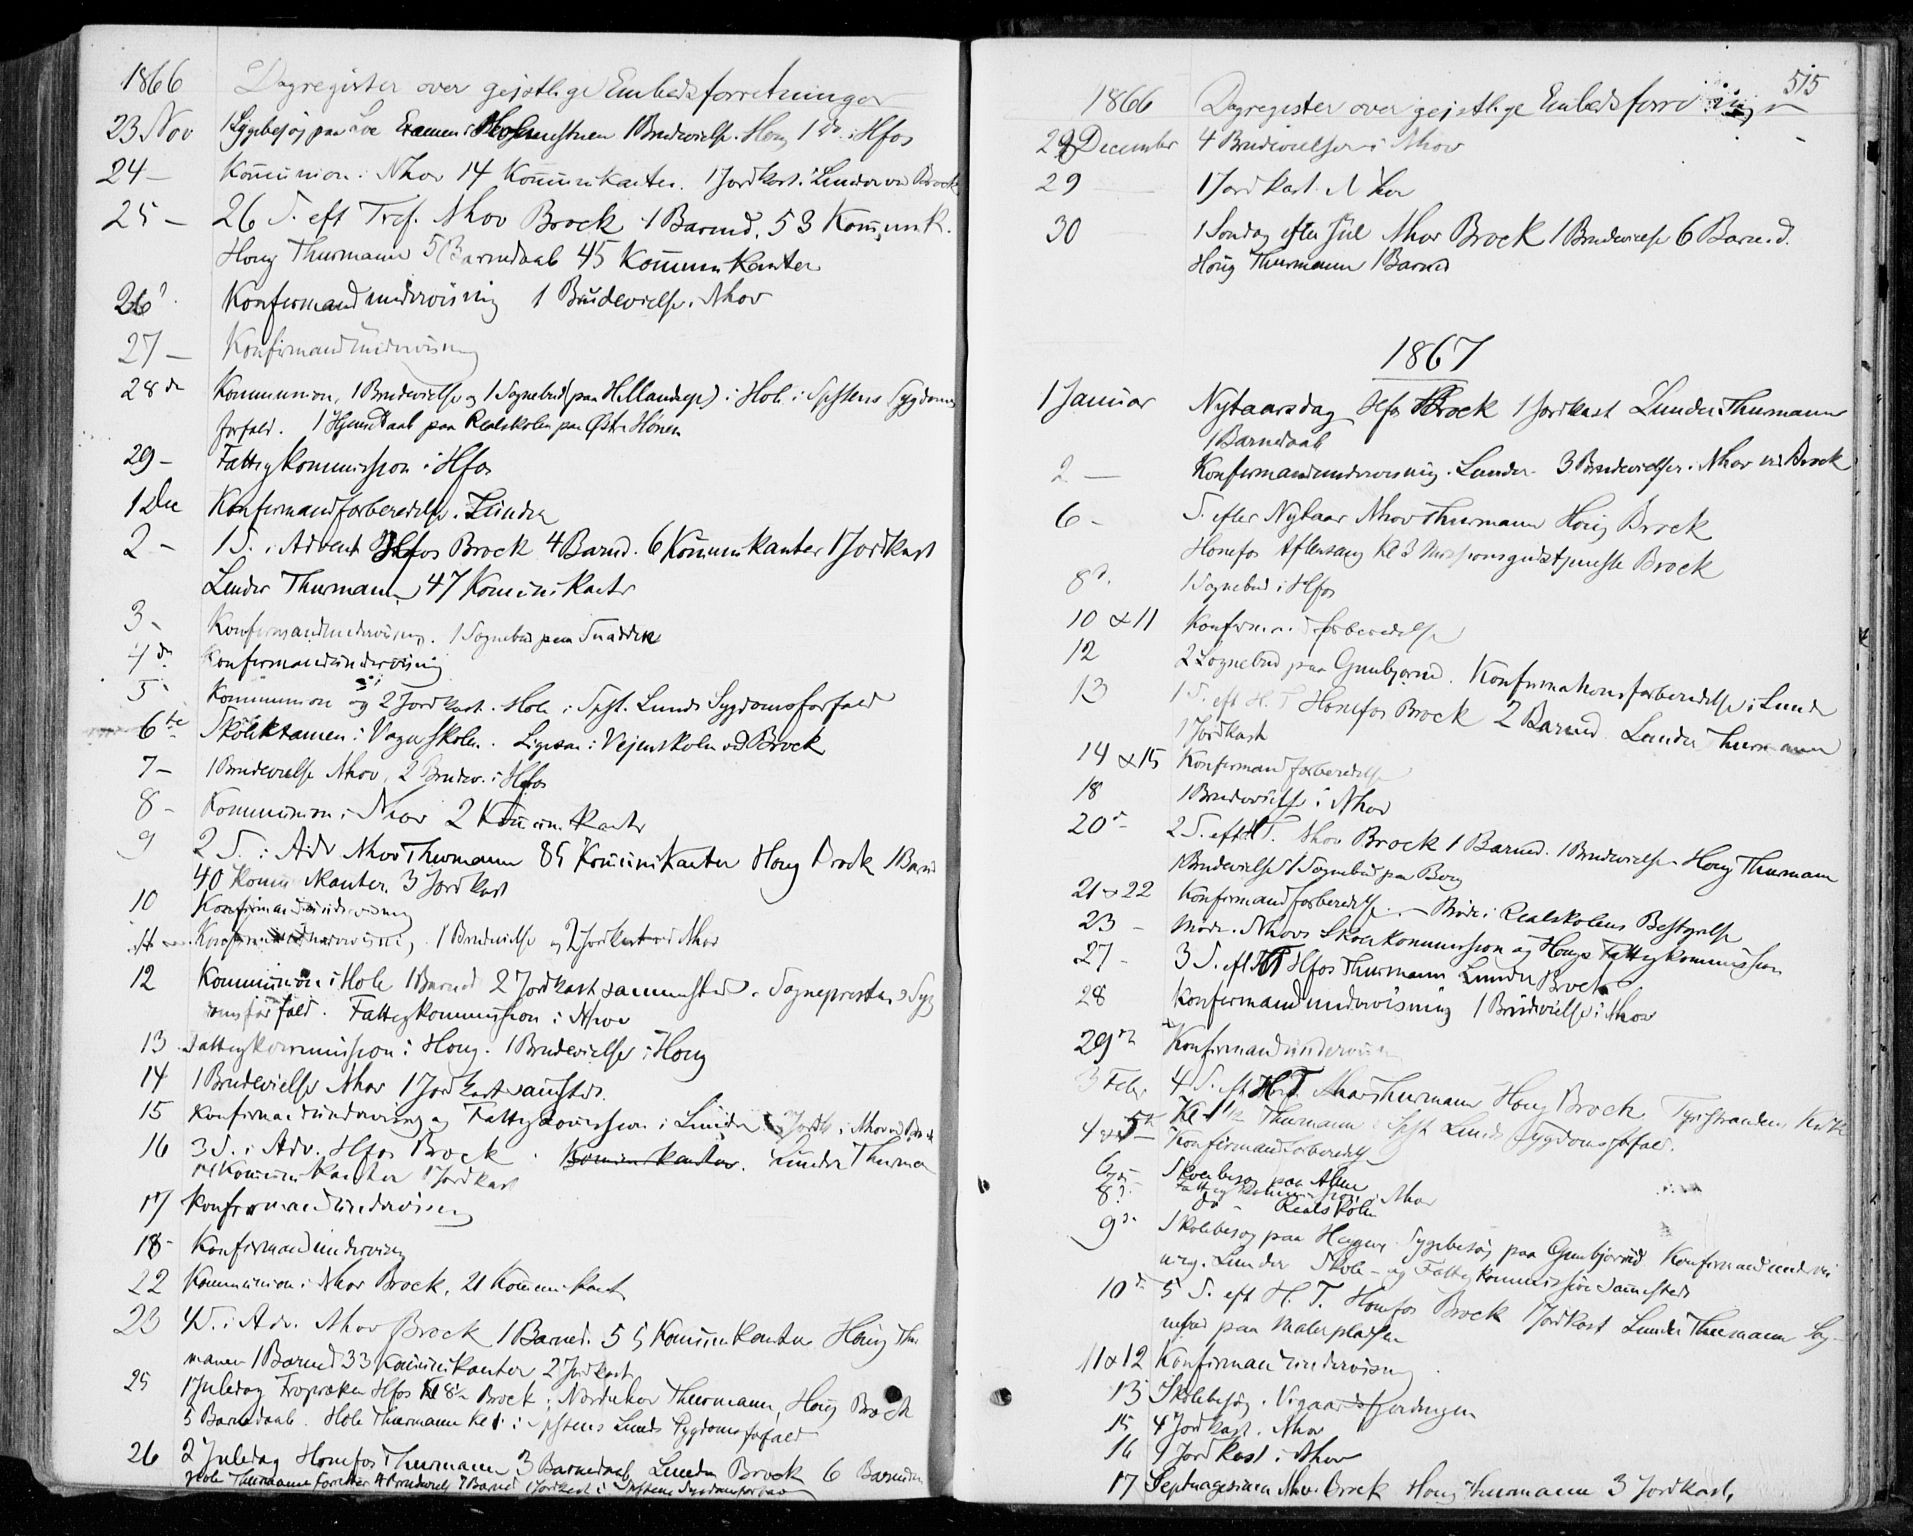 1866 Dagregister over gejstlige Embedsforretninger
23 Nov 1 Sygebesøg paa Examen i 1 Brudevielse. Houg 1 do i Hfos
24 – Kommunion i Nhov 14 Kommunikanter. 1 Jordkast. i Lunder ved Brock
25 – 26 S. eft Tref. Nhov Brock 1 Barnd. 53 Kommunik.
Houg Thurmann 5 Barnedaab 45 Kommunikanter
26 Konfirmandundervisning 1 Brudevielse i Nhov
27 – Konfirmandundervisning
28 de Kommunion, 1 Brudevielse og 1 Sognebud (paa ) i Hole i Spstens Sygdoms
forfald. 1 Hjemmedaab paa Realskolen paa Østre Hønen
29 – Fattigkommission i Hfos
1 Dec Konfirmandforberedelse i Lunder
2 – 1 S. i Advent Hfos Brock 4 Barnd. 6 Kommunikanter 1 Jordkast
Lunder Thurmann 47 Kommunikanter
3 – Konfirmandundervisning. 1 Sognebud paa
4 de Konfirmandundervisning
5 Kommunion og 2 Jordkast. Hole i Spst. Lunds Sygdomsforfald
6 te Skoleexamen i Vagerskolen. Ligesaa i Vejenskolen ved Brock
7 – 1 Brudevielse Nhov, 2 Brudev. i Hfos
8 – Kommunion i Nhov 2 Kommunikanter
9 2 S. i Adv Nhov Thurmann 85 Kommunikanter Houg Brock 1 Barnd
40 Kommunikanter. 3 Jordkast
10 Konfirmandundervisning
11 Konfirmandundervisning. 1 Brudevielse og 2 Jordkast ved Nhov
12 Kommunion i Hole 1 Barnd 2 Jordkast sammesteds i Sogneprestens Syg
domsforfald. Fattigkommission i Nhov
13 Fattigkommission i Houg. 1 Brudevielse i Houg
14 1 Brudevielse Nhov 1 Jordkast samsteds.
15 Konfirmandundervisning og Fattigkommission i Lunder. Jordk i Nhov ved Brock
16 3 S. i Adv. Hfos Brock. Kommunikanter. Lunder Thurma
Kommunikanter 1 Jordkast
17 Konfirmandundervisning
18 – Konfirmandunderving
22 Kommunion i Nhov Brock, 21 Kommunikant
23 4 S. i Adv. Nhov Brock 1 Barned. 55 Kommunikanter Houg Thur
mann 1 Barnd 33 Kommunikanter 2 Jordkast
25 1 Juledag Hfos Kl 8½ Brock i Norderhov Thurmann, Houg Brock
5 Barnedaab. Hole Thurmann Kl 1 i Spstens Lunds Sygdomsforfald
26 2 Juledag Honefos Thurmann 3 Barnedaab Lunder Brock 6 Barnedaab
Hole Thurmann 7 Barnd 1 Jordkast i Spstens Sygdomsforfald
515
1866 Dagregister over gejstlige Embedsforretninger
28 December 4 Brudevielser i Nhov
29 1 Jordkast. Nhov
30 1 Søndag efter Jul Nhov Brock 1 Brudevielse 6 Barned.
Houg Thurmann 1 Barned
1867
1 Januar Nytaarsdag Hfos Brock 1 Jordkast Lunder Thurmann
1 Barnedaab
2 – Konfirmandundervisning. Lunder. 3 Brudevielser. i Nhov ved Brock
6 – S. efter Nytaar Nhov Thurmann Houg Brock
Honefos Aftensang Kl 3 Missionsgudstjeneste Brock
8 d. 1 Sognebud i Hfos
10 & 11 Konfirmandforberedelse
12 2 Sognebud paa Gunbjørrud. Konfirmationsforberedelse i Lunder
13 1 S. eft H. T Honefos Brock 2 Barned. Lunder Thurmann
1 Jordkast
14 & 15 Konfirmandforberedelse
18 1 Brudevielse i Nhov
20 d – 2 S. eft H T. Nhov Brock 1 Barned. 1 Brudevielse Houg Thurmann
1 Brudevielse 1 Sognebud paa Berg
21 & 22 Konfirmandforberedelse. – Møde i Realskolens Bestyrelse
23 – Møde. Nhovs Skolekommission og Hougs Fattigkommission
27 – 3 S. eft H T Hfos Thurmann Lunder Brock
28 Konfirmandundervisning 1 Brudevielse i Nhov
29 de Konfirmandundervisn
3 Feb. 4 S. eft H. T. Nhov Thurmann Houg Brock Tyristrandens Kirke
Kl 1½ Thurmann i Spst Lunds Sygdomsforfald.
4 & 5 – Konfirmandforberedelse
6 – Skolebesøg paa
Fattigkommission i Nhov
8 d. do Realskolen
9 d. Skolebesøg paa Sygebesøg paa Gunbjørrud Konfirmandundervis
ning. Lunder Skole- og Fattigkommission sammesteds
10 d 5 S. eft H. T. Honefos Brock 1 Jordkast Lunder Thurmann Sog–
nebud paa Malerpladsen
11 & 12 Konfirmandundervisning
13 Skolebesøg. Vigaardsfjerdingen
15 4 Jordkast. Nhov
16 1 Jordkast i Nhov
17 Septuagesima Nhov. Brock Houg Thurmann 3 Jordkast.